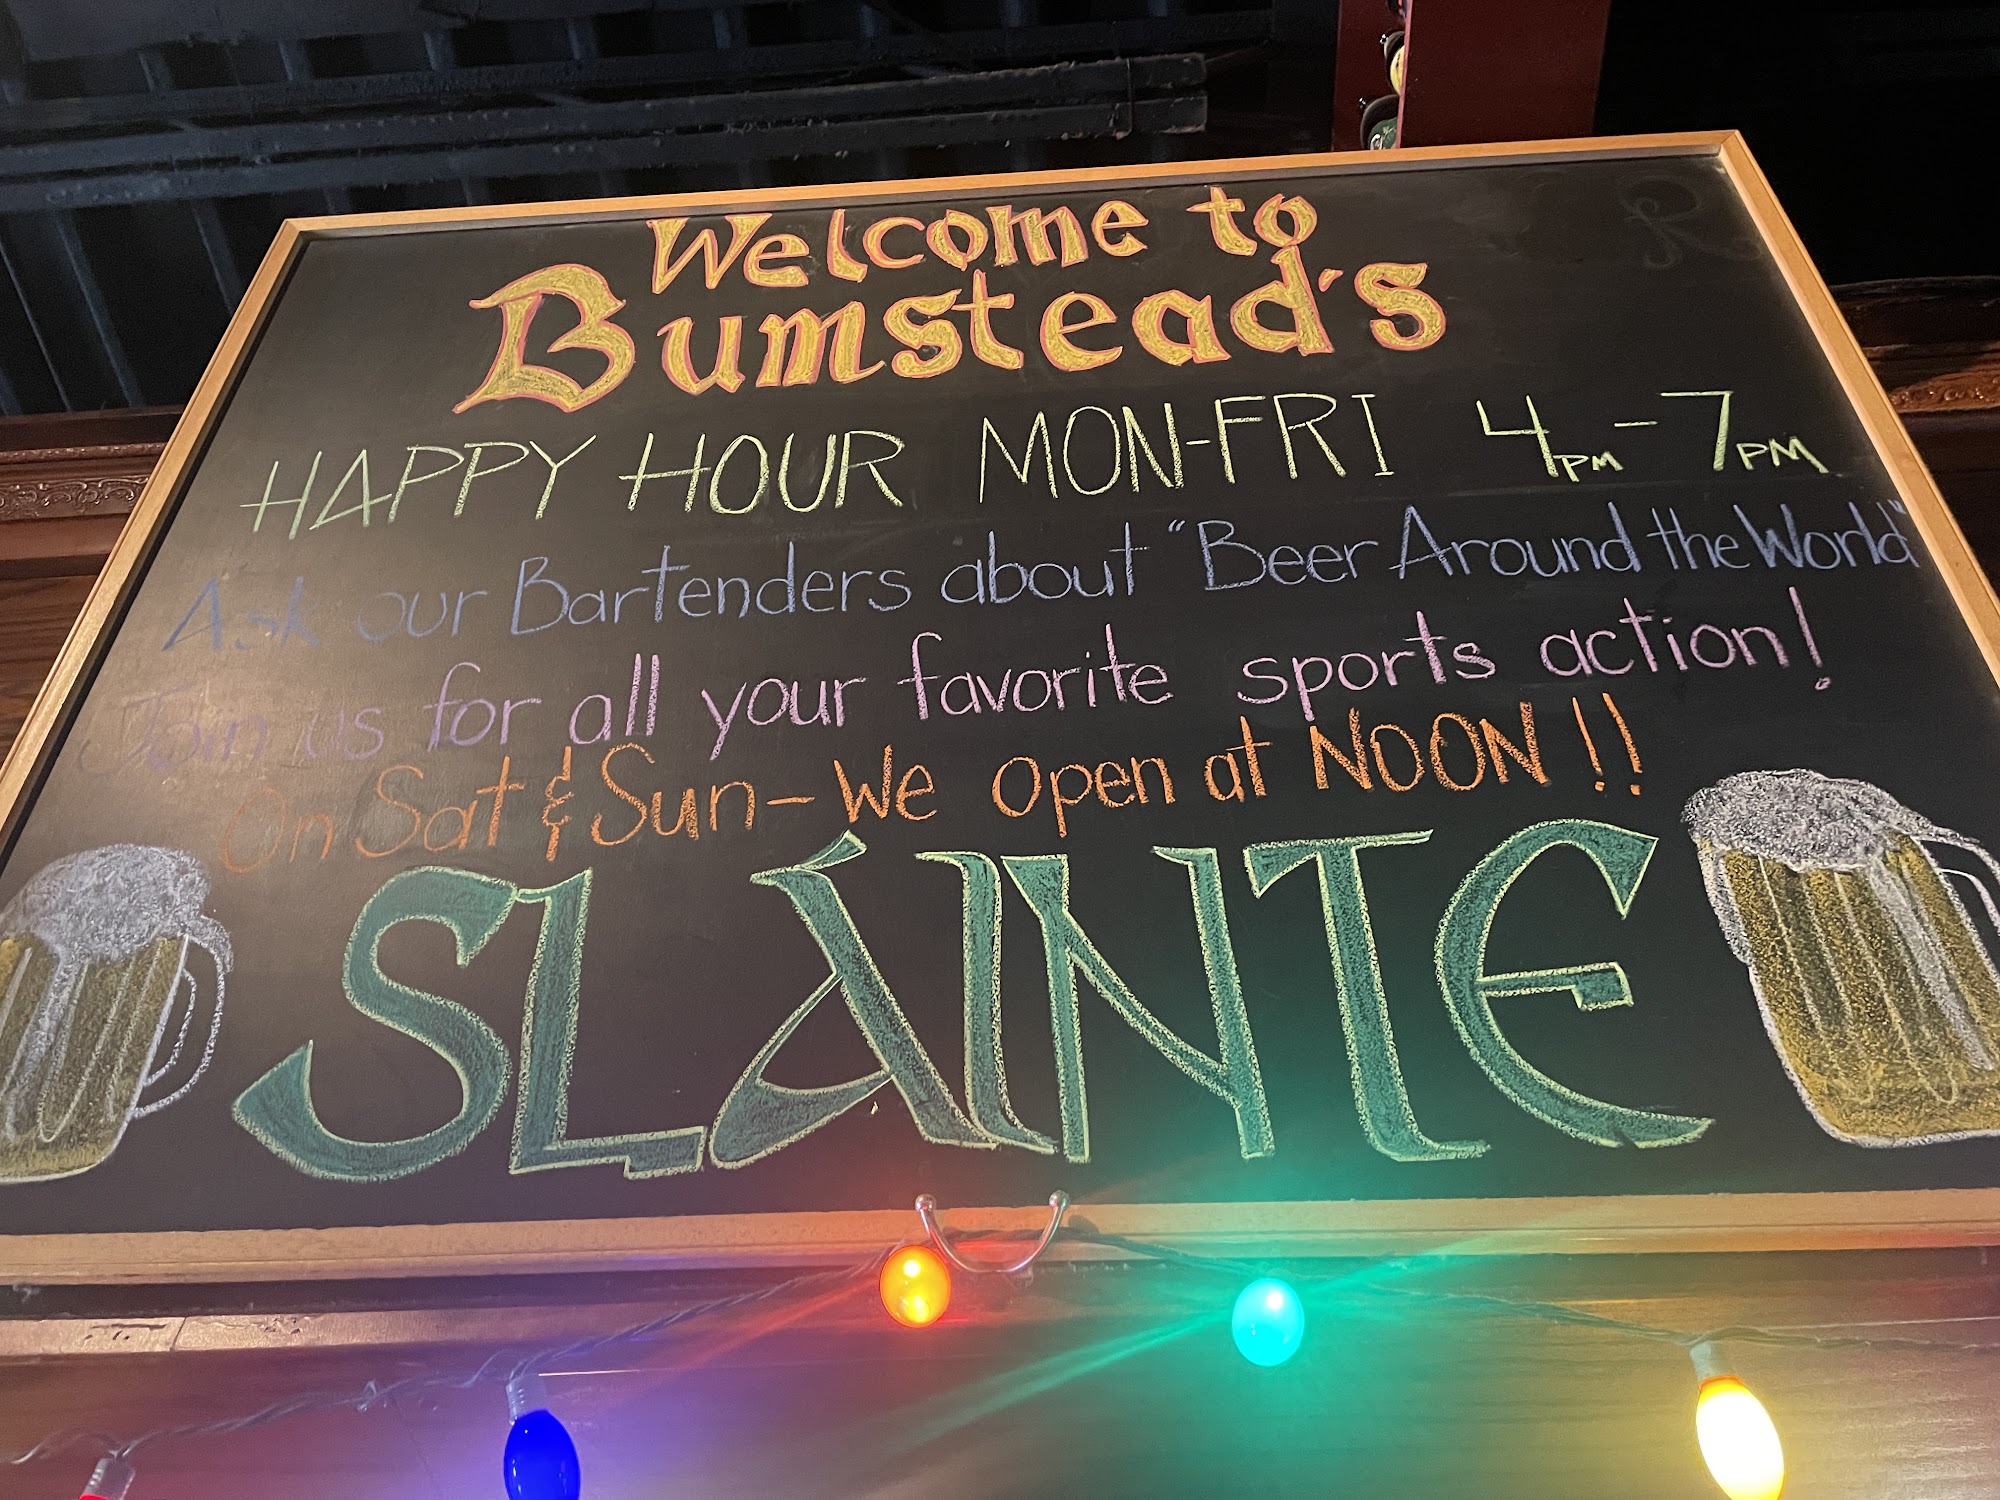 Welcome to
Bumstead's
HAPPY HOUR MON-FRI 4PM-7PM
Ask our Bartenders about "Beer Around the World"
Join us for all your favorite sports action!
On Sat & Sun - We open at NOON!!
SLÁINTE